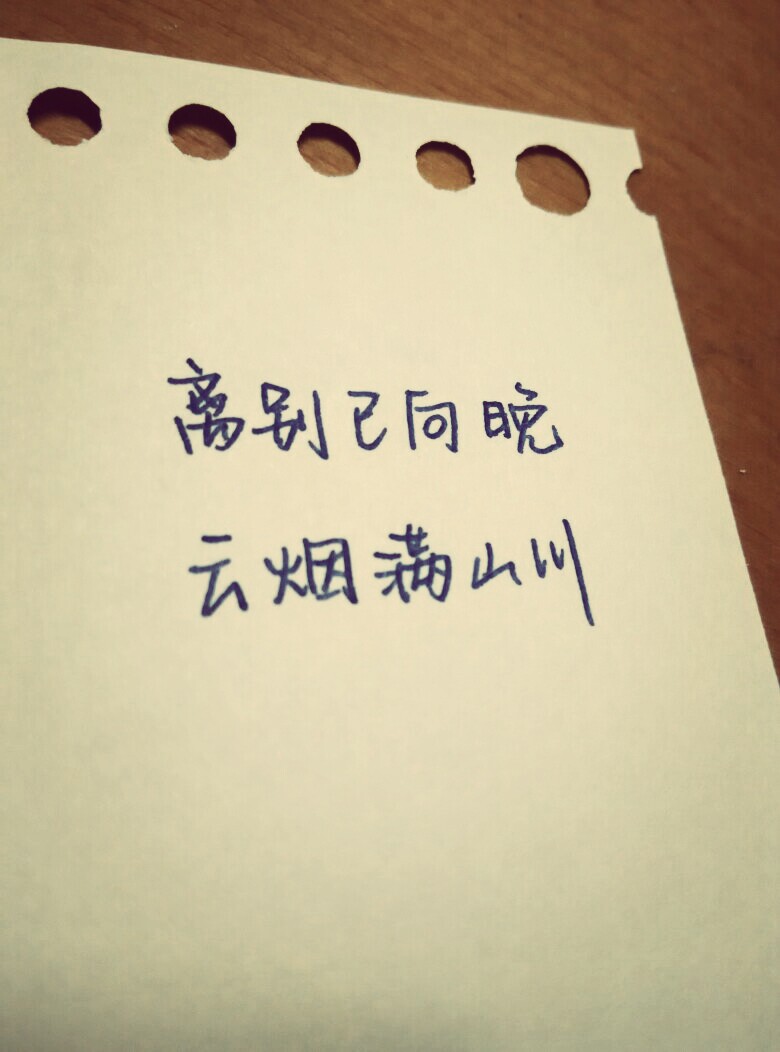 离别已向晚
云烟满山川